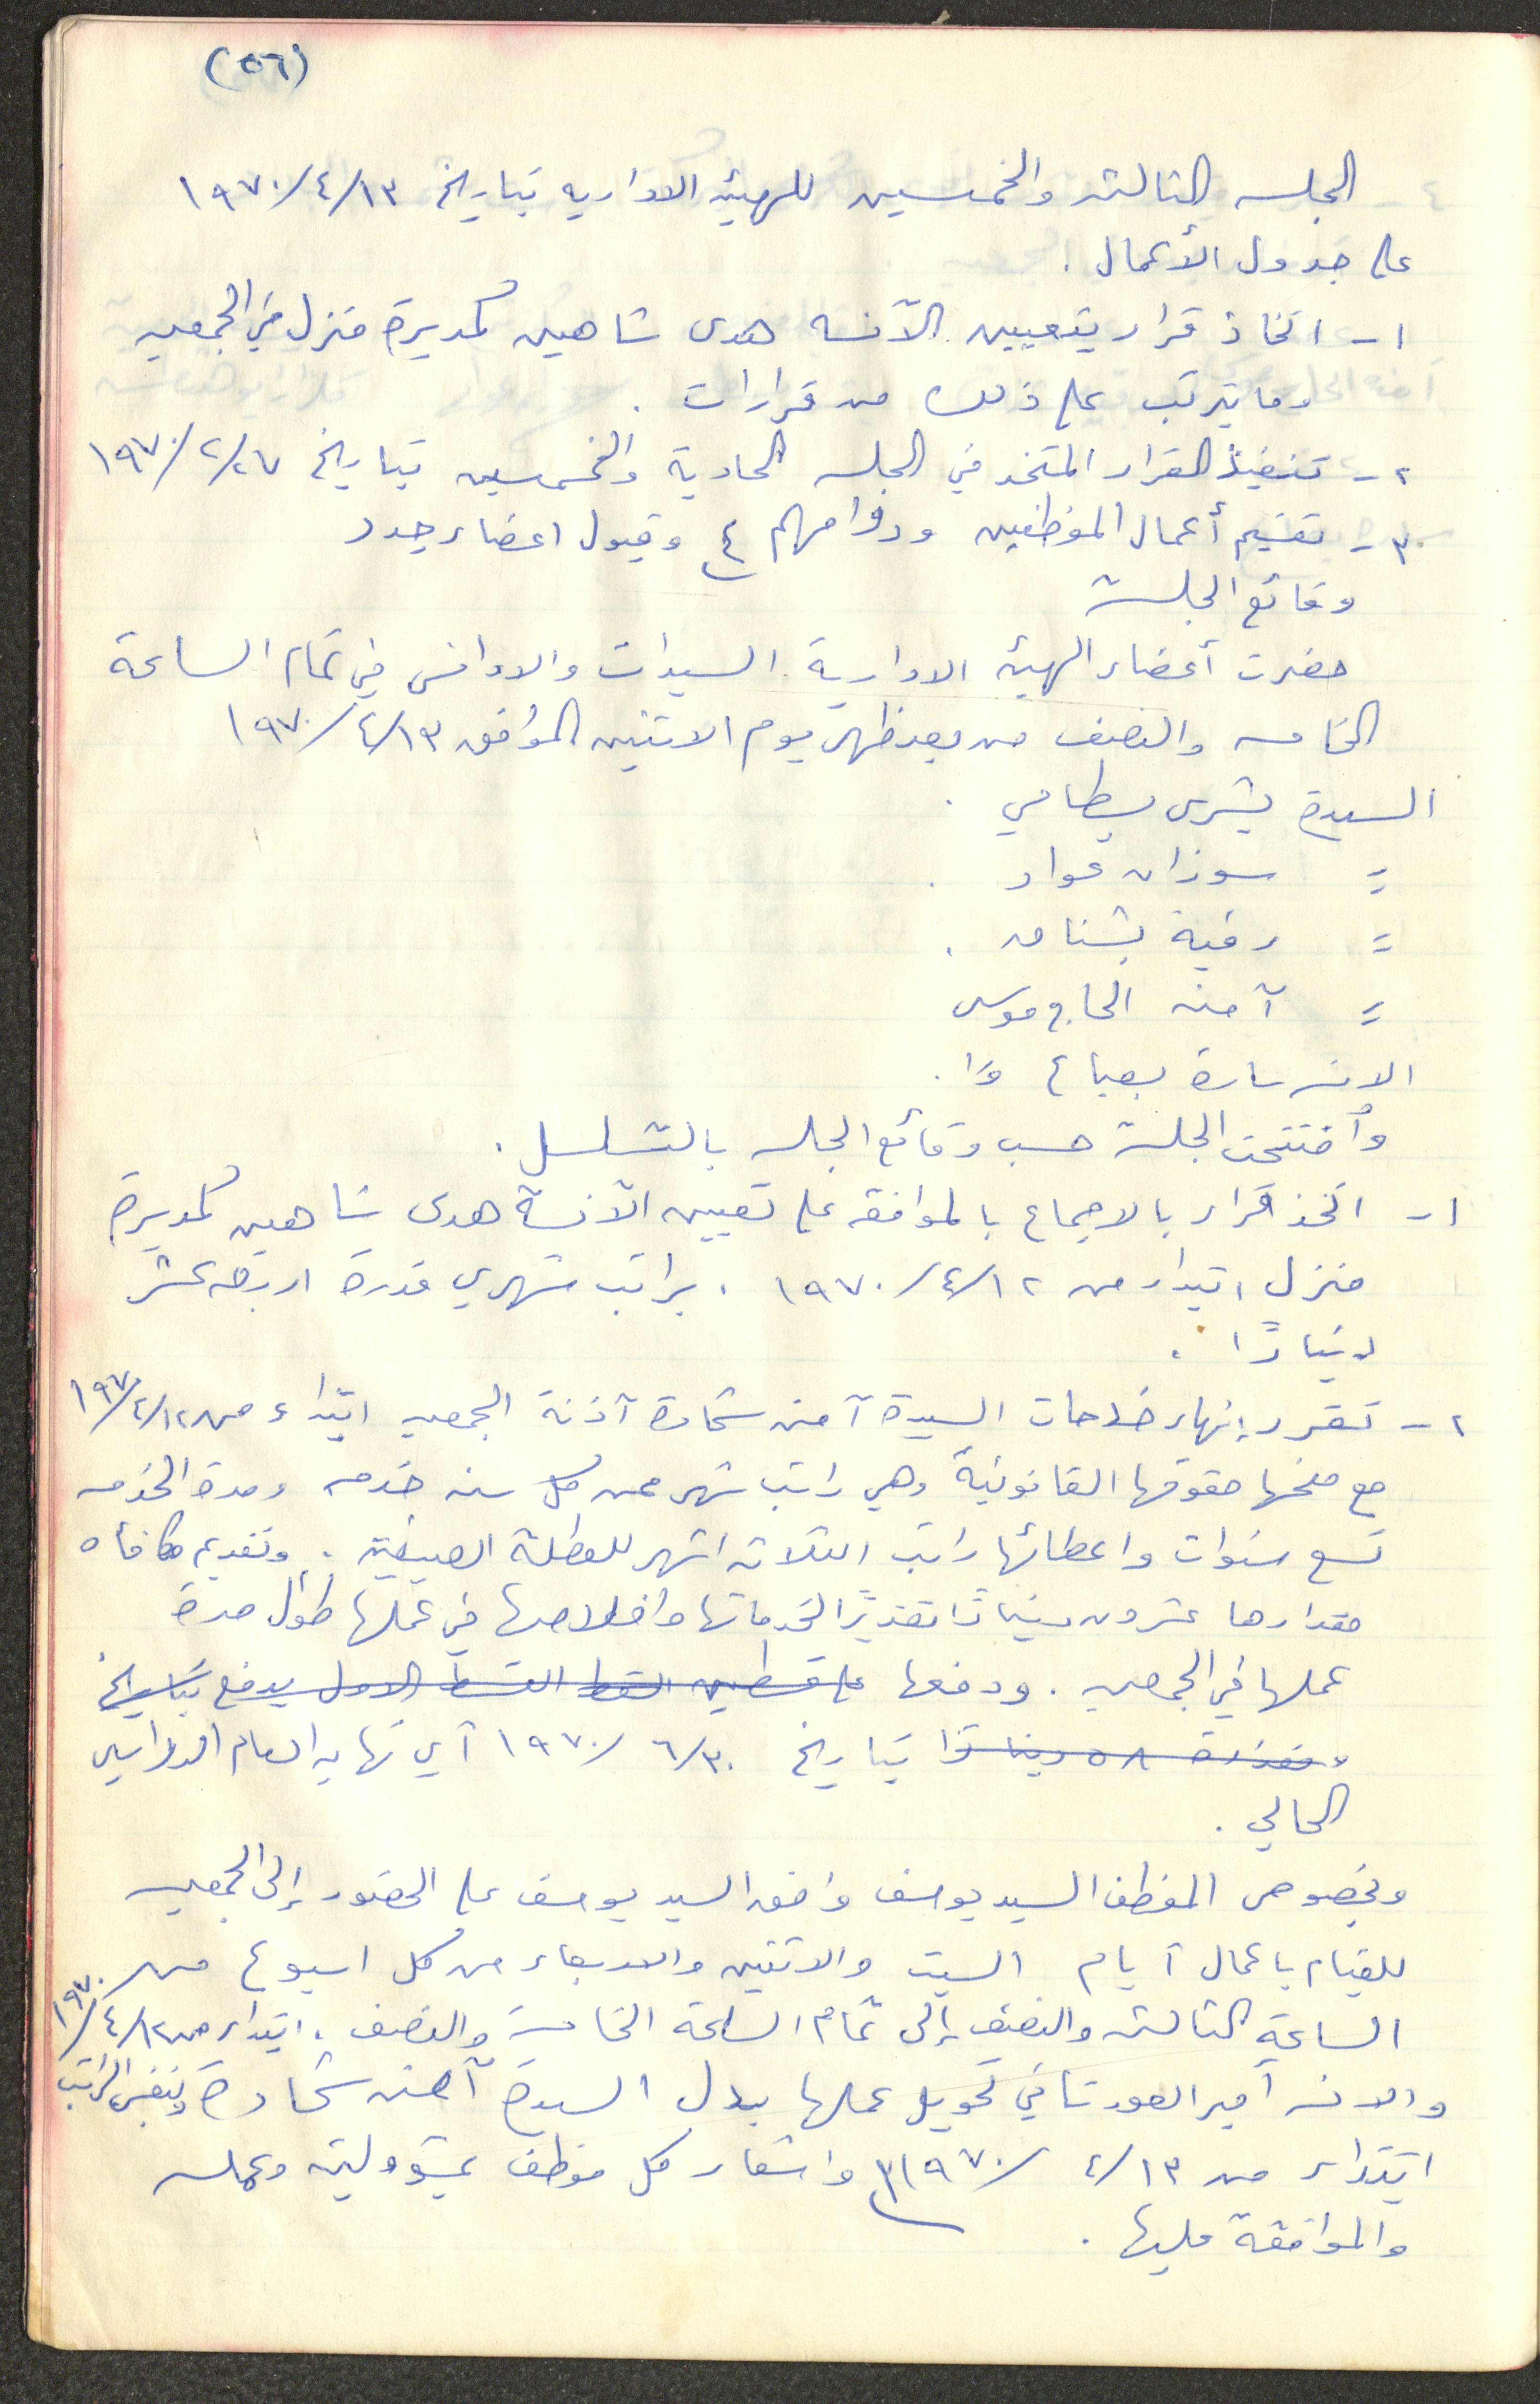 (٥٦)
الجلسه الثالثه والخمسين للهيئه الاداريه بتاريخ ١٩٧٠/٤/١٣
على جدول الأعمال .
١ - اتخاذ قرار بتعيين الآنسه هدى شاهين كمديرة منزل في الجمعيه
وما يترتب على ذلك من قرارات .
٢ - تنفيذ القرار المتخذ في الجلسه الحادية والخمسين بتاريخ ١٩٧٠/٢/٢٧
٣ - تقسيم أعمال الموظفين ودوامهم ٤ وقبول اعضاء جدد
وقائع الجلسة
حضرت أعضاء الهيئه الادارية السيدات والاوانس في تمام الساعة
الخامسه والنصف من بعد ظهر يوم الاثنين الموافق ١٩٧٠/٤/١٣
السيدة يشرى بسطامي .
= سوزان عواد .
= رقية بشناق .
= آمنه الحاج موسى
الانسه سارة بعباع .
وأفتتحت الجلسة حسب وقائع الجلسه بالتسلسل .
١ - اتخذ قرار بالاجماع بالموافقه على تعيين الآنسة هدى شاهين كمديرة
منزل ابتداء من ١٩٧٠/٤/١٢ . براتب شهري قدرة اربعة عشر
دينارًا .
٢ - تقرر إنهاء خدمات السيدة آمنه شحادة آذنة الجمعيه ابتداء من ١٩٧٠/٤/١٢
مع منحها حقوقها القانونية وهي راتب شهر عن كل سنه خدمه ومدة الخدمه
تسع سنوات واعطائها راتب الثلاثه اشهر للعطلة الصيفية . وتقديم مكافأه
مقدارها عشرون دينارًا تقديرًا لخدماتها واخلاصها في عملها طول مدة
عملها في الجمعيه . ودفعها على قسطين القسط القسط الاول يدفع بتاريخ
وقدرة ٥٨ دينارًا بتاريخ ١٩٧٠/٦/٣٠ آي نهايه العام الدراسي
الحالي .
وبخصوص الموظف السيد يوسف وافق السيد يوسف على الحضور إلى الجمعيه
للقيام باعمال آيام السبت والاثنين والاربعاء من كل اسبوع من
الساعة الثالثه والنصف إلى تمام الساعة الخامسة والنصف . ابتداء من ١٩٧٠/٤/١٢
والانسه آمير العورتاني تحويل عملها بدل السيدة آمنه شحادة وبنفس الراتب
ابتداء من ١٩٧٠/٤/١٣ ٣ واشعار كل موظف بمسؤوليته وعمله
والموافقة عليها .